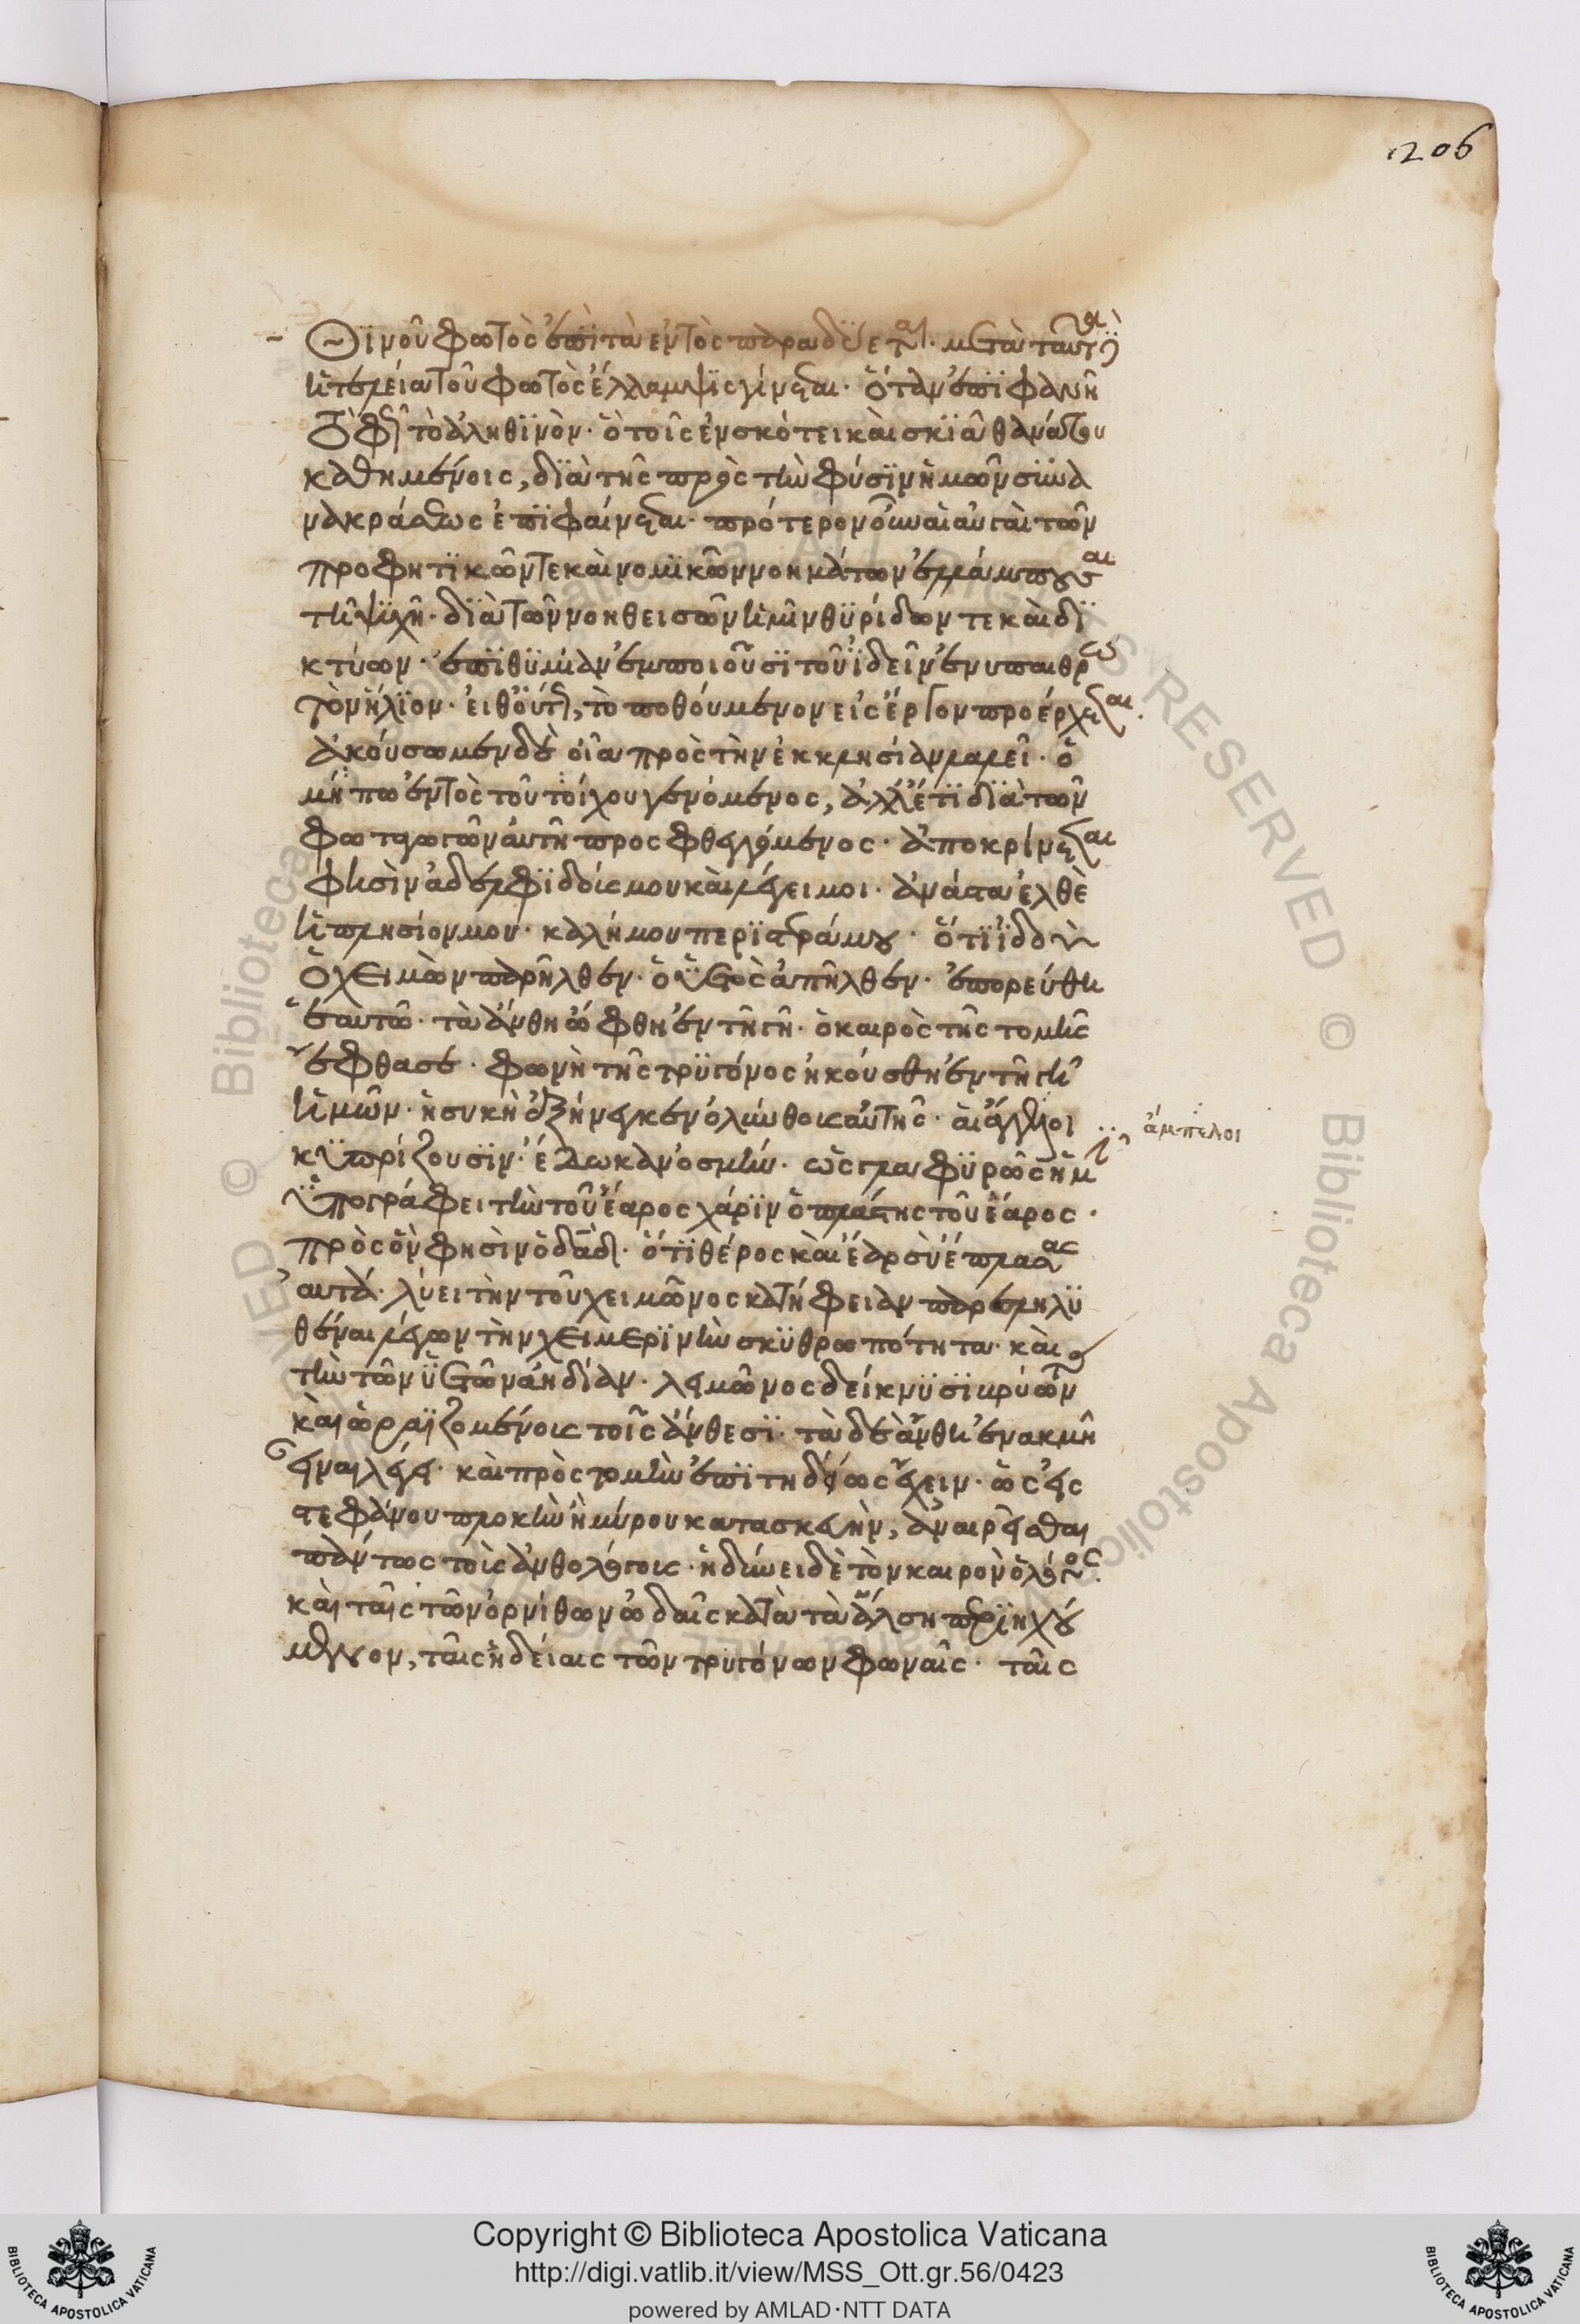 206
θινοῦ φωτὸς ἐπὶ τὰ ἐντὸς παραδύεται. μετὰ ταῦτα δὲ
ἡ τελεία τοῦ φωτὸς ἔλλαμψις γίνεται. ὅταν ἐπιφανῆ
τὸ φῶς τὸ ἀληθινὸν. ὃ τοῖς ἐν σκότει καὶ σκιᾶ θανάτου
καθημένοις, διὰ τῆς πρὸς τὴν φύσιν ἡμῶν συνα
νακράσεως ἐπιφαίνεται. πρότερον οὖν αἱ αὐγαὶ τῶν
προφητικῶν τε καὶ νομικῶν νοημάτων ἐλλάμπουσαι
τῆ ψυχῆ. διὰ τῶν νοηθεισῶν ἡμῖν θυρίδων τε καὶ δι
κτύων. ἐπιθυμίαν ἐμποιοῦσι τοῦ ἰδεῖν ἐν υπαιθρω
τὸν ἥλιον. εἶθ οὕτως, τὸ ποθούμενον εἰς ἔργον προέρχεται.
ἀκούσωμεν δὲ οἷα πρὸς τὴν ἐκκλησίαν λαλεῖ. ὁ
μή πω ἐντὸς τοῦ τοίχου γενόμενος, ἀλλ ἔτι διὰ τῶν
φωταγωγῶν αὐτῆ προςφθεγγόμενος. ἀποκρίνεται
φησὶν ἀδελφιδός μου καὶ λέγει μοι. ἀνάστα ἐλθὲ
ἡ πλησίον μου. καλή μου περιστερά μου. ὅτι ἰδοὺ
ὁ χειμὼν παρῆλθεν. ὁ ὑετὸς ἀπῆλθεν. ἐπορεύθη
ἑαυτῶ. τὰ ἄνθη ὤφθη ἐν τῆ γῆ. ὁ καιρὸς τῆς τομῆς
ἔφθασε. φωνὴ τῆς τρυγόνος ἠκούσθη ἐν τῆ γῆ
ἡμῶν. ἡ συκὴ ἐξήνεγκεν ὀλύνθους αὐτῆς. αἱ ἄμπελοι
ἄμπελοι
κυπρίζουσιν. ἔδωκαν ὀσμήν. ὡς γλαφυρῶς ἡμῖν
ὑπογράφει τὴν τοῦ ἔαρος χάριν ὁ πλάστης τοῦ ἔαρος.
πρὸς ὃν φησὶν ὁ δαδ. ὅτι θέρος καὶ ἔαρ σὺ ἔπλασας
αὐτά. λύει τὴν τοῦ χειμῶνος κατήφειαν παρεληλυ
θέναι λέγων τὴν χειμερινὴν σκυθρωπότητα. καὶ
τὴν τῶν ὑετῶν ἀηδίαν. λειμῶνας δείκνυσι βρύοντας
καὶ ὡραϊζομένους τοῖς ἄνθεσι. τὰ δὲ ἄνθη ἐν ακμῆ
εἶναι λέγει. καὶ πρὸς τομὴν ἐπιτηδείως ἔχειν. ὡς εἰς
στεφάνου πλοκὴν ἢ μύρου κατασκευὴν, ἀναιρεῖσθαι
πάντως τοὺς ἀνθολόγους. ἡδύνει δὲ τὸν καιρὸν ὁ λόγος.
καὶ ταῖς τῶν ὀρνίθων ὠδαῖς κατὰ τὰ ἄλση περιηχού
μενον, ταῖς ἡδείαις τῶν τρυγόνων φωναῖς. ταῖς
Copyright © Biblioteca Apostolica Vaticana
http://digi.vatlib.it/view/MSS_Ott.gr.56/0423
powered by AMLAD·NTT DATA